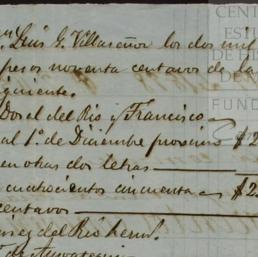 Luis G. Villaseñor los dos mil
pesos noventa centavos de la
siguiente.
Dos el del Rio y Francisco
al 1º de Diciembre proximo $2
en otras dos letras
cuatrocientos cincuenta $2
centavos
del Rio herm.
CENT
EST
DE H
DE
FUND